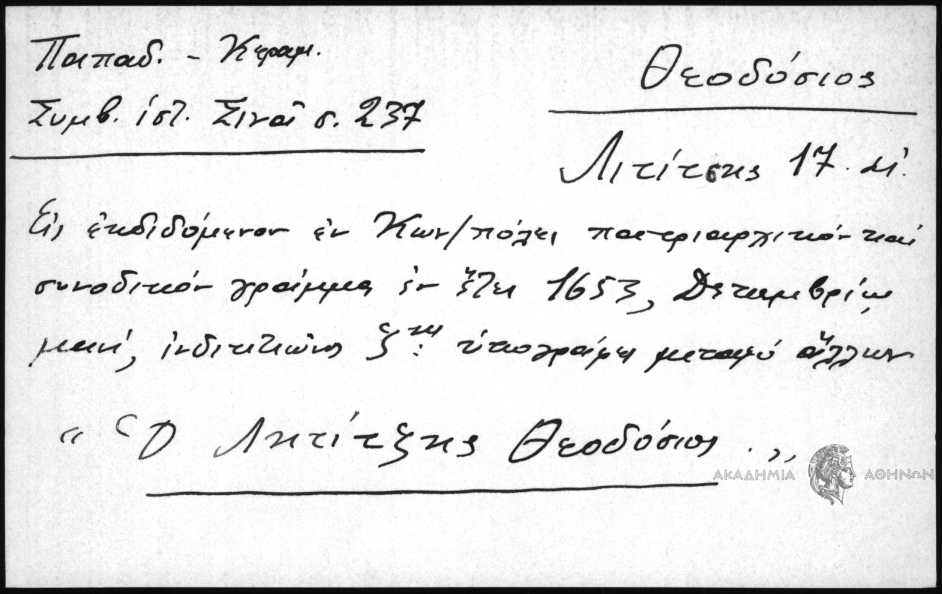 Παπαδ. - Κεραμ.
Συμβ. ἱστ. Σινᾶ σ. 237
Θεοδόσιος
Λιτίτσης 17. αἰ.
Εἰς ἐκδιδόμενον ἐν Κων/πόλει πατριαρχικὸν καὶ
συνοδικὸν γράμμα ἐν ἔτει 1653, Δεκεμβρίῳ
μηνί, ἰνδικτιῶνος ζ.ης ὑπογράφει μεταξὺ ἄλλων
" Ὁ Λητίτζης Θεοδόσιος . "
ΑΚΑΔΗΜΙΑ ΑΘΗΝΩΝ